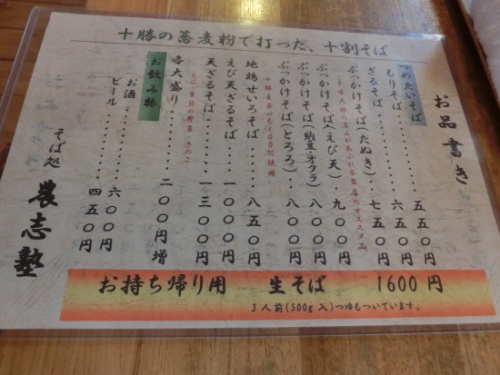 十勝の蕎麦粉で打った、十割そば
お品書き
つめたいそば
もりそば・・・・・・・・・五五〇円
ざるそば・・・・・・・・・六五〇円
ぶっかけそば(たぬき)・・・七五〇円
ぶっかけそば(えび天)・・・九〇〇円
ぶっかけそば(納豆・オクラ)・・・八五〇円
ぶっかけそば(とろろ)・・・八〇〇円
地鶏せいろそば・・・・・・八五〇円
えび天ざるそば・・・・・・一〇〇〇円
天ざるそば・・・・・・・・一三〇〇円
各大盛り・・・・・・・・・二〇〇円増
お飲み物
お酒・・・・・・・・・・・六〇〇円
ビール・・・・・・・・・・四五〇円
そば処 農志塾
お持ち帰り用 生そば 1600円
3人前(500g入)つゆもついています。